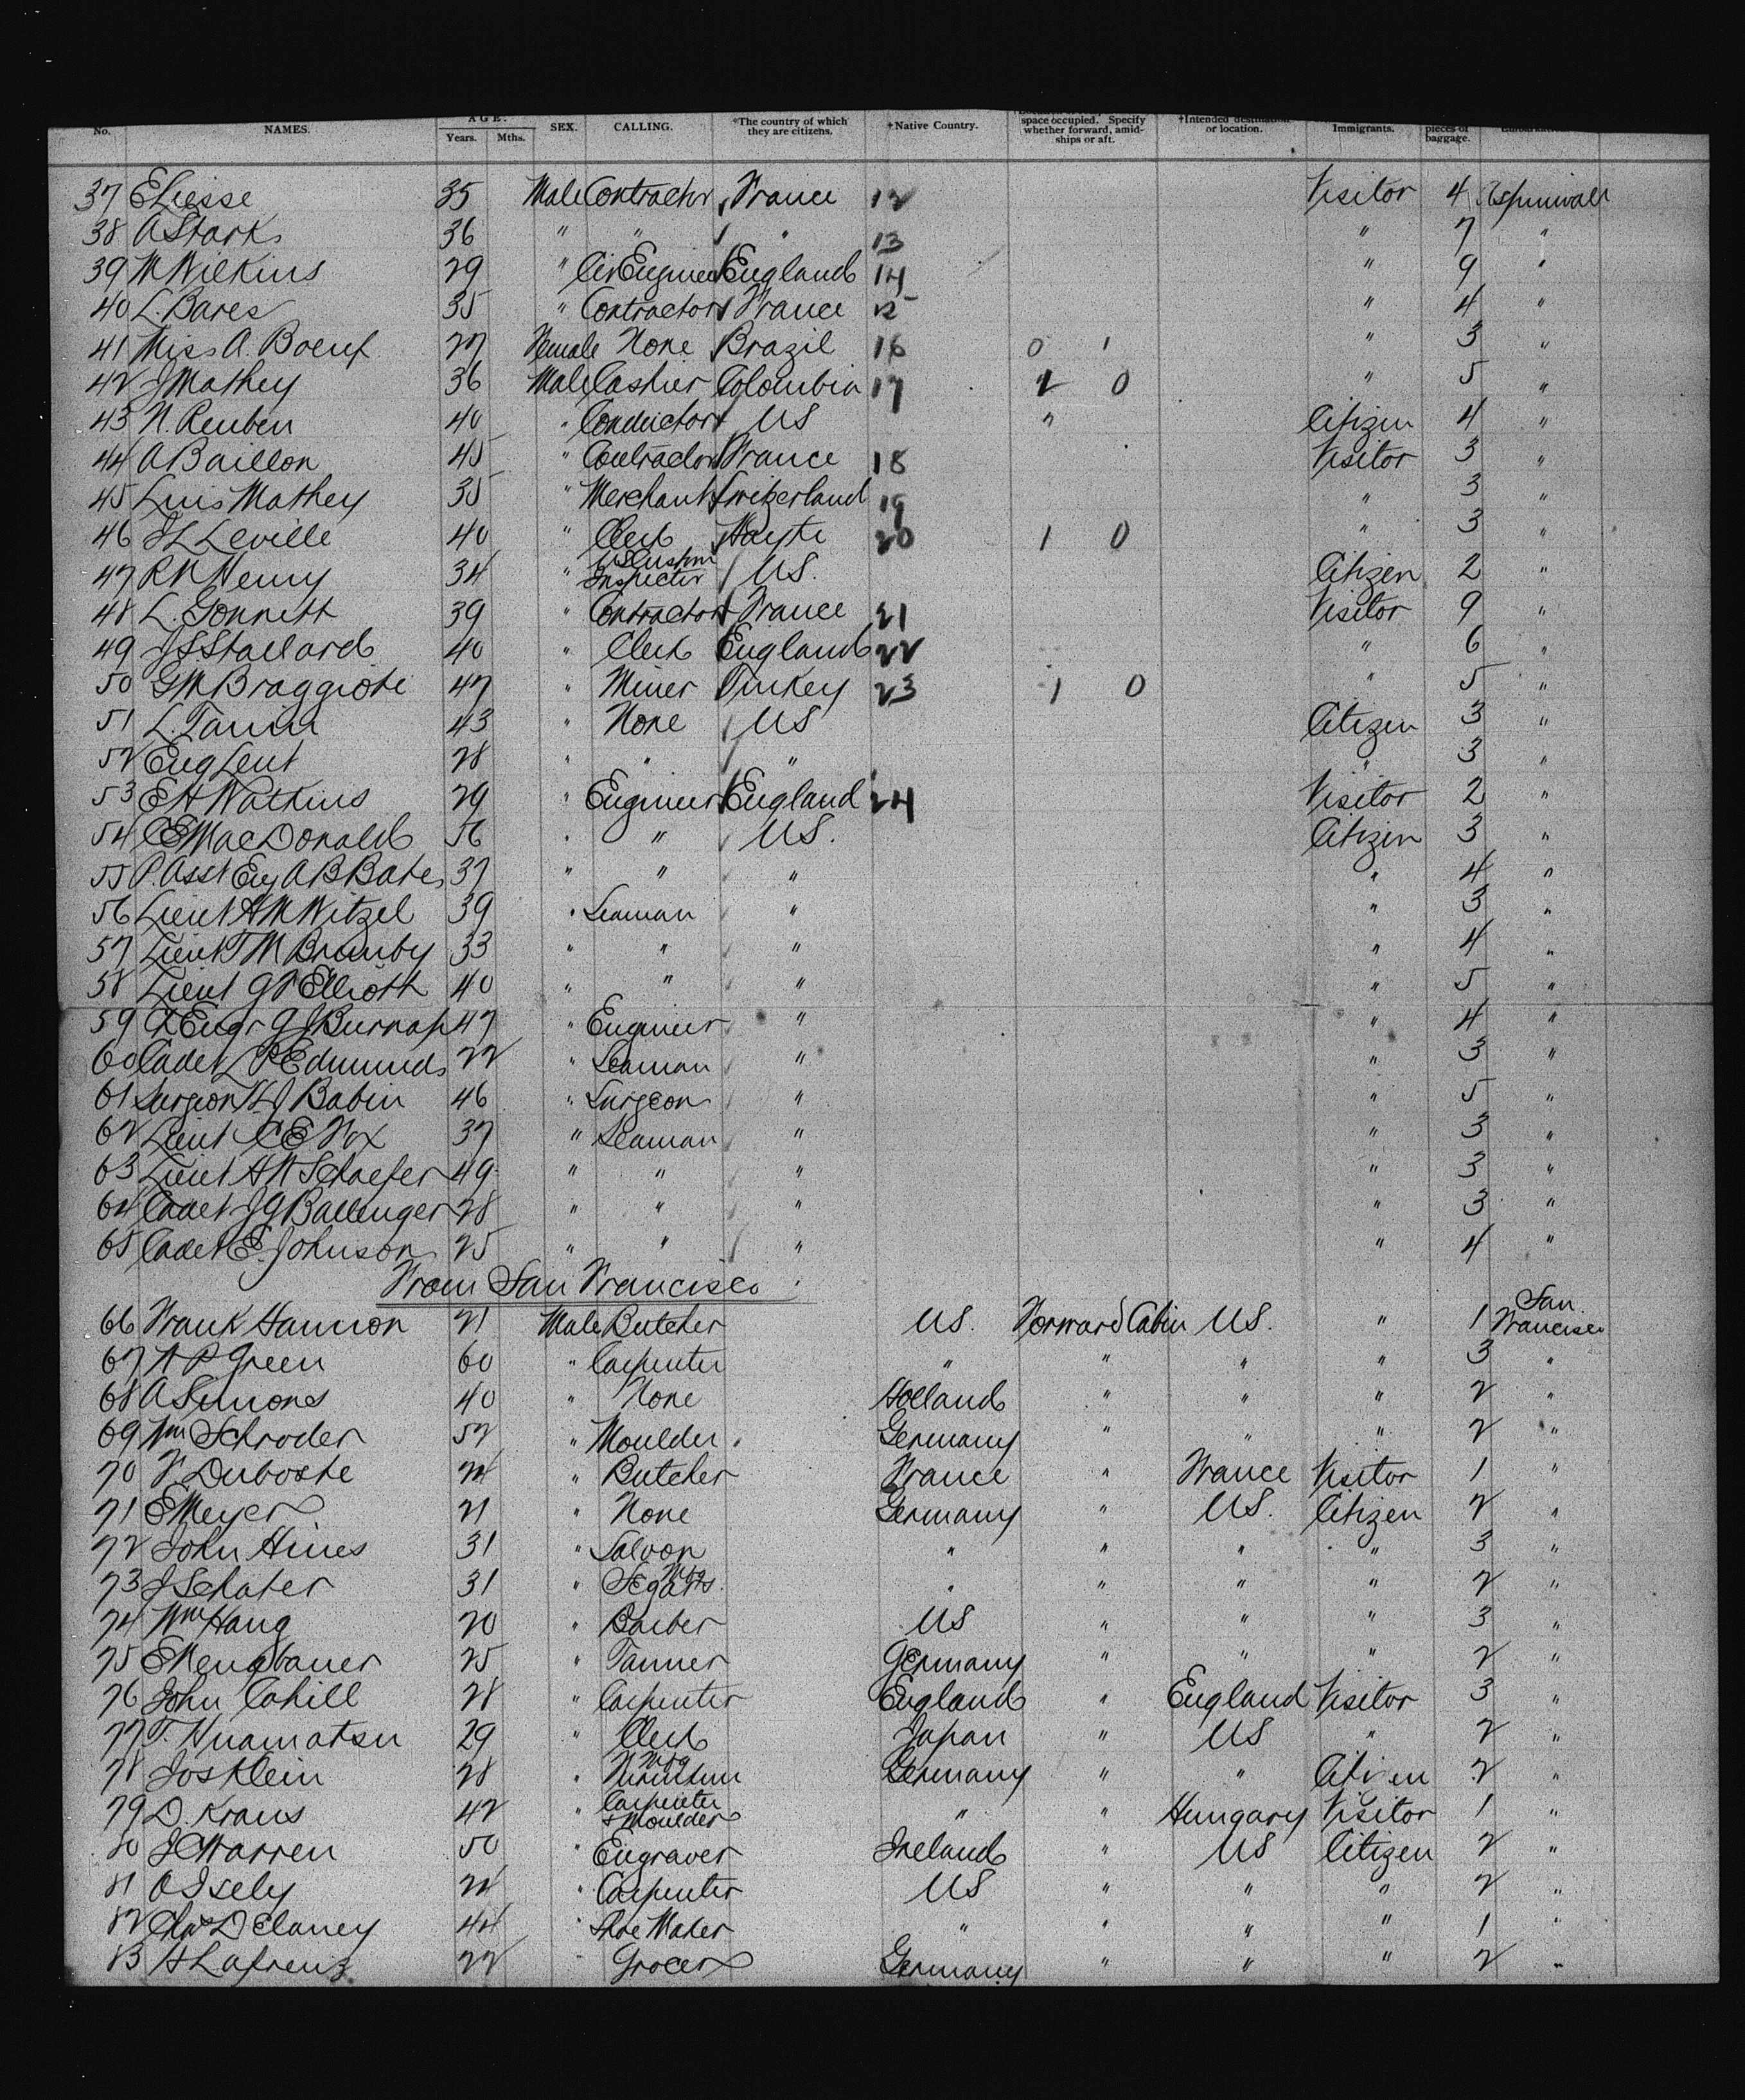 No. NAMES. AGE. Years. Mths. SEX. CALLING. *The country of which they are citizens. †Native Country. space occupied. Specify whether forward, amid-ships or aft. †Intended destination or location. Immigrants. pieces of baggage.
37 E Liesse 35 Male Contractor France 12 Visitor 4 Aspinwall
38 A Stark 36 " " " 13 " 7 "
39 W Wilkins 29 " Civ Engineer England 14 " 9 "
40 L. Bares 35 " Contractor France 15 " 4 "
41 Miss A. Boeuf 27 Female None Brazil 16 0 1 " 3 "
42 J Mathey 36 Male Cashier Colombia 17 1 0 " 5 "
43 N. Reuben 40 " Conductor US " Citizen 4 "
44 A Baillon 45 " Contractor France 18 Visitor 3 "
45 Luis Mathey 35 " Merchant Switzerland 19 " 3 "
46 J L Leville 40 " Clerk Hayti 20 1 0 " 3 "
47 R W Henry 34 " US Custom Inspector US. Citizen 2 "
48 L. Gonnett 39 " Contractor France 21 Visitor 9 "
49 J S. Stallard 40 " Clerk England 22 " 6 "
50 G M Braggioti 47 " Miner Turkey 23 1 0 " 5 "
51 L. 43 " None US Citizen 3 "
52 Eug Lent 28 " " " " 3 "
53 E H Watkins 29 " Engineer England 24 Visitor 2 "
54 C E MacDonald 56 " " US. Citizen 3 "
55 P. Asst Eng A B Bates 37 " " " " 4 "
56 Lieut H M Witzel 39 " Seaman " " 3 "
57 Lieut T M Brumby 33 " " " " 4 "
58 Lieut G F Elliott 40 " " " " 5 "
59 Engr G J Burnap 47 " Engineer " " 4 "
60 Cadet L P Edmunds 22 " Seaman " " 3 "
61 Surgeon H. J Babin 46 " Surgeon " " 5 "
62 Lieut C E Fox 37 " Seaman " " 3 "
63 Lieut H W Schaefer 49 " " " " 3 "
64 Cadet J G Ballinger 28 " " " " 3 "
65 Cadet E. Johnson 25 " " " " 4 "
From San Francisco
66 Frank Hannon 21 Male Butcher US. Forward Cabin US. " 1 San Francisco
67 A P Green 60 " Carpenter " " " " 3 "
68 A Simons 40 " None Holland " " " 2 "
69 Wm Schroder 52 " Moulder Germany " " " 2 "
70 F. Duboste 24 " Butcher France " France Visitor 1 "
71 E Meyer 21 " None Germany " US. Citizen 2 "
72 John Hines 31 " Saloon " " " " 3 "
73 J Schafer 31 " Mfg Segars. " " " " 2 "
74 Wm Haug 20 " Barber US " " " 3 "
75 E Neugebauer 25 " Tanner Germany " " " 2 "
76 John Cahill 28 " Carpenter England " England Visitor 3 "
77 T. 29 " Clerk Japan " US " 2 "
78 Jos Klein 28 " Mfg Furniture Germany " " Citizen 2 "
79 D. Kraus 42 " Carpenter & Moulder " " Hungary Visitor 1 "
80 J C Warren 50 " Engraver Ireland " US Citizen 2 "
81 A Isely 24 " Carpenter US " " " 2 "
82 Chas Delaney 44 " Shoe Maker " " " " 1 "
83 H Lafrenz 22 " Grocer Germany " " " 2 "